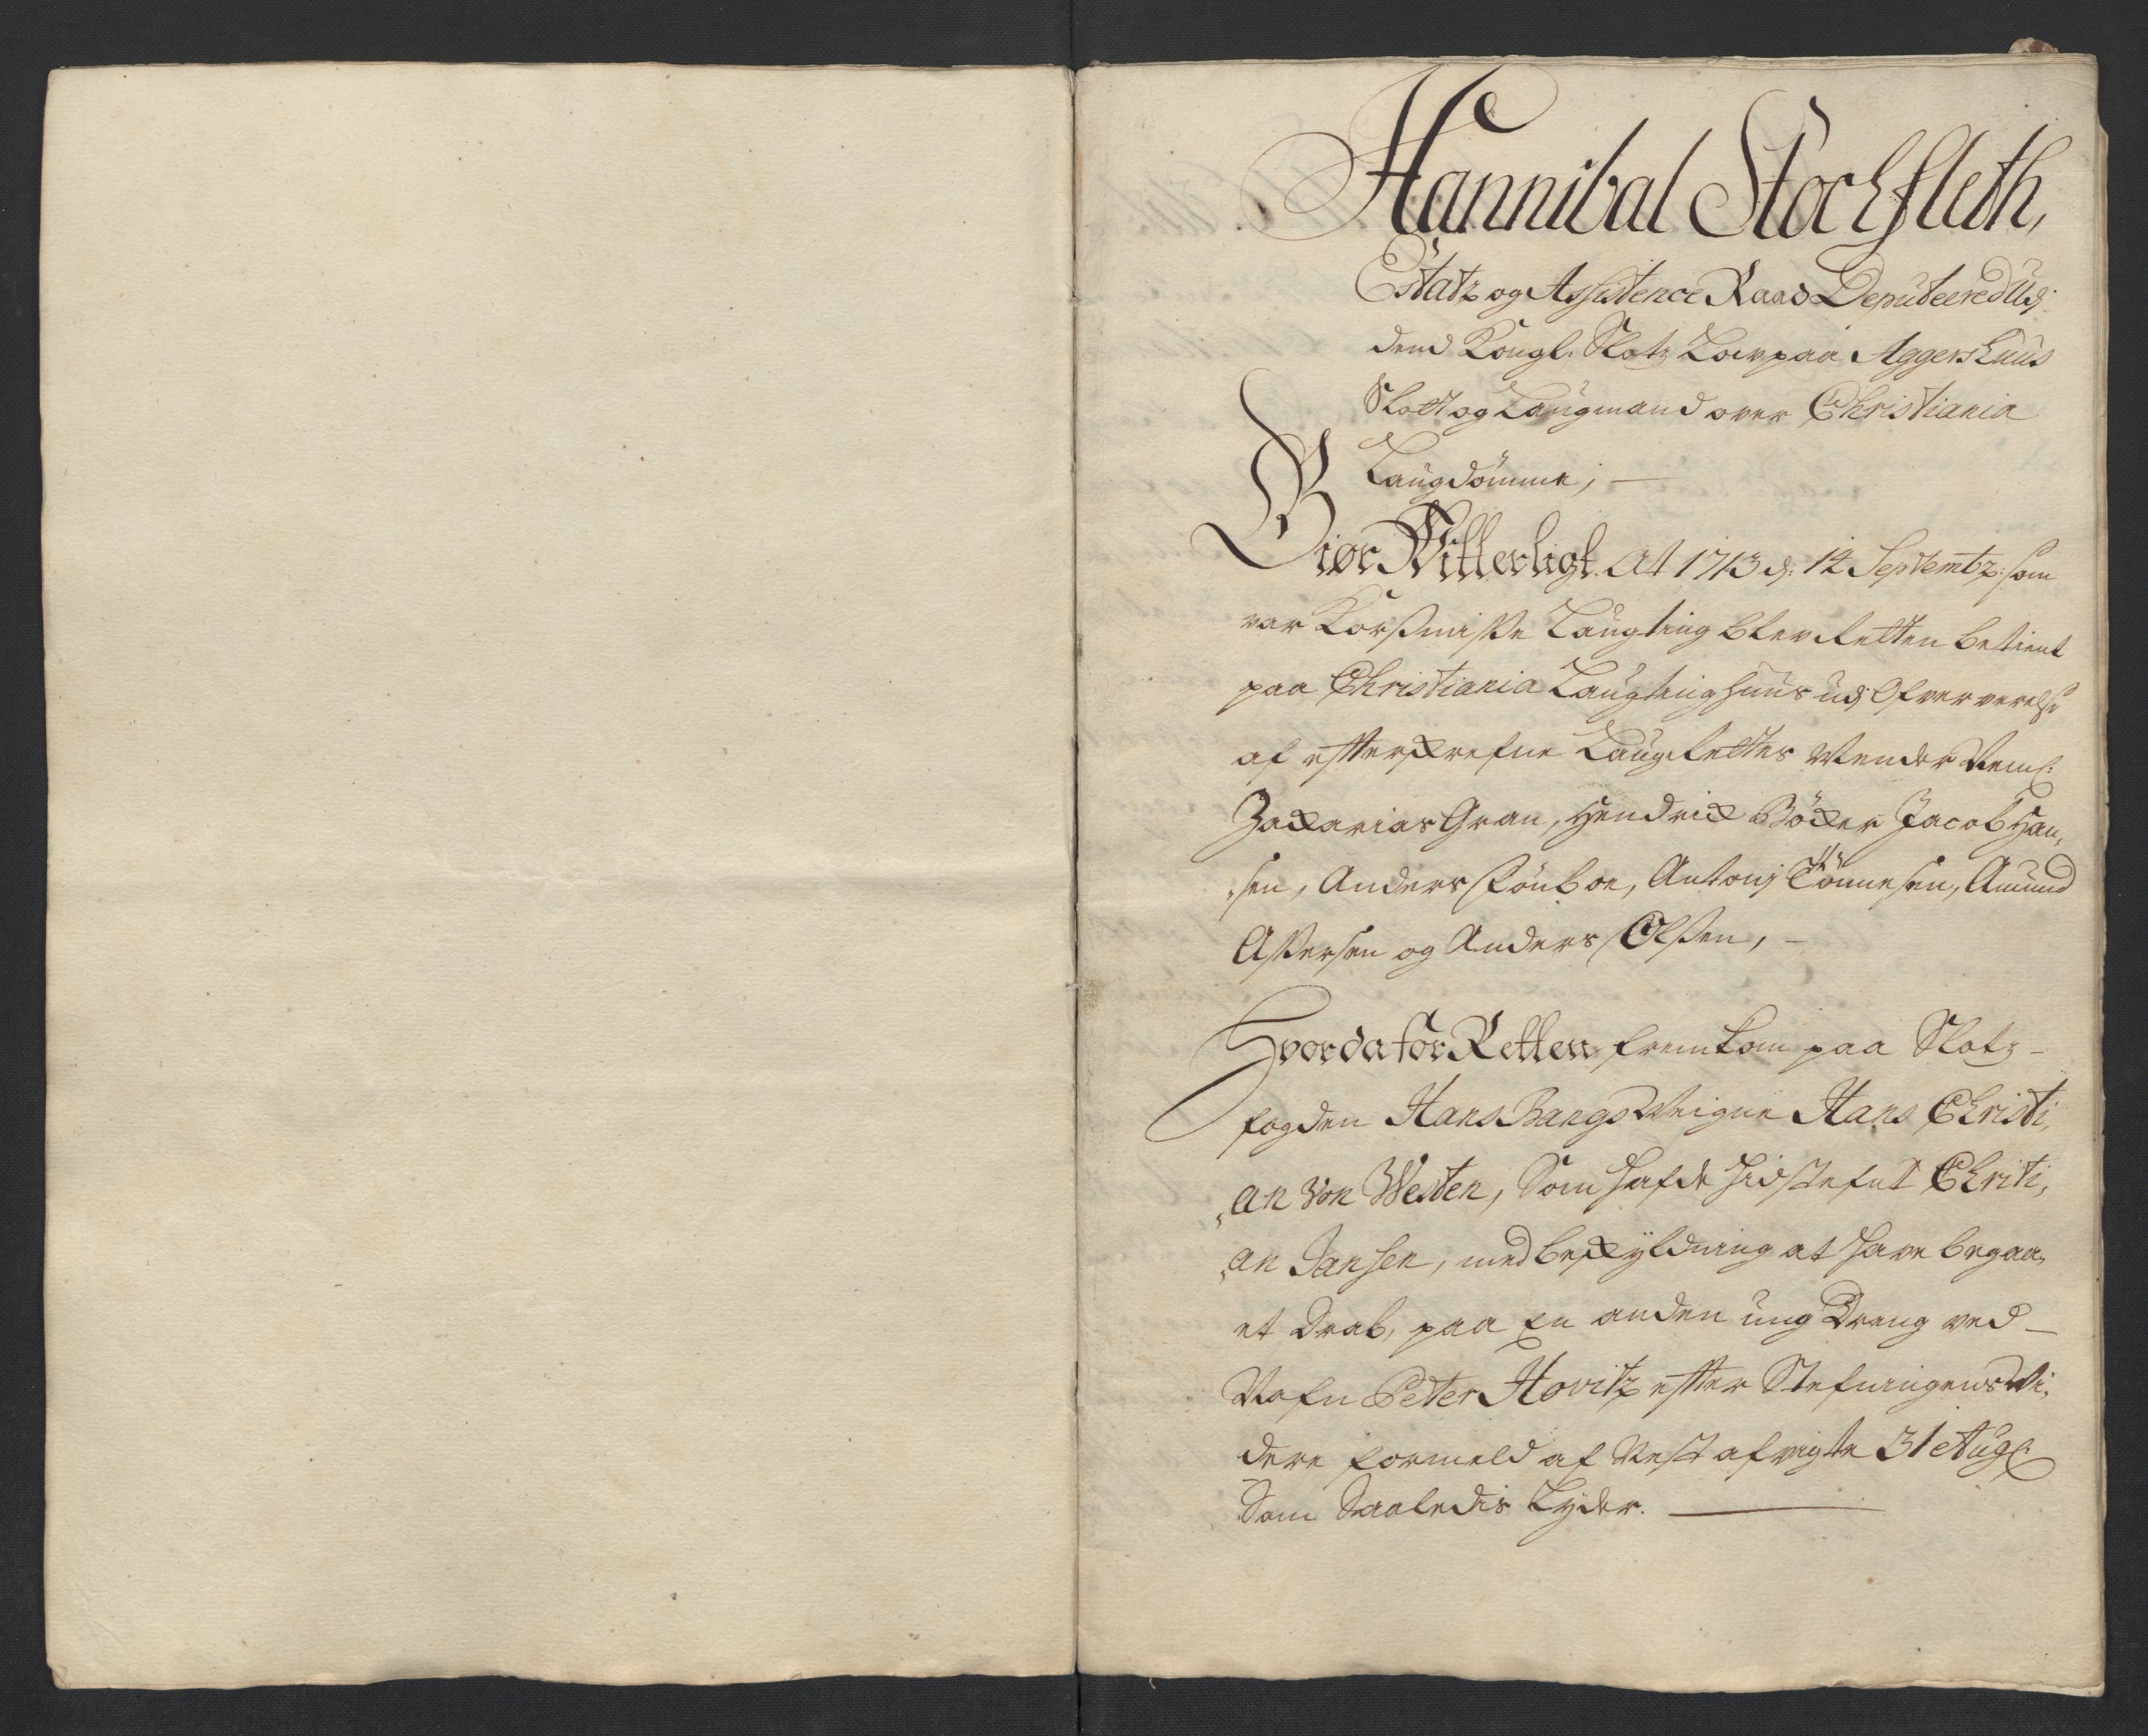 Hannibal Stochfleth,
Estatz og Assistence Raad Deputeered Udj
dend Kongl: Slotz Low paa Aggershuus
Slott og Laugmand over Christiania
Laugdömme, —
Giør Witterligt At 1713 d: 14 Septembr: som
var Korsmisse Laugting blev Retten betient
paa Christiania Laugting huus udj Ofververelse
af efterskrefne Laug Rettes Mender Neml:
Zakarias Gran, Hendrick Böcker Jacob Han,
,sen, Anders Schönboe, Antonj Tönnesen, Amund
Assersen og Anders Olsen, —
Hvorda for Retten fremkom paa Slotz-
fogden Hans Bangs Weigne Hans Christi,
,an Von Westen, Som hafde hid stefnt Christi,
,an Jansen, med beskyldning at have begaa,
et Drab, paa En anden ung Dreng ved —
Nafn Peter Hovitz efter Stefningens Vi,
dere formeld af Nest afvigte 31 Aug:
Som Saaledis Lyder. —